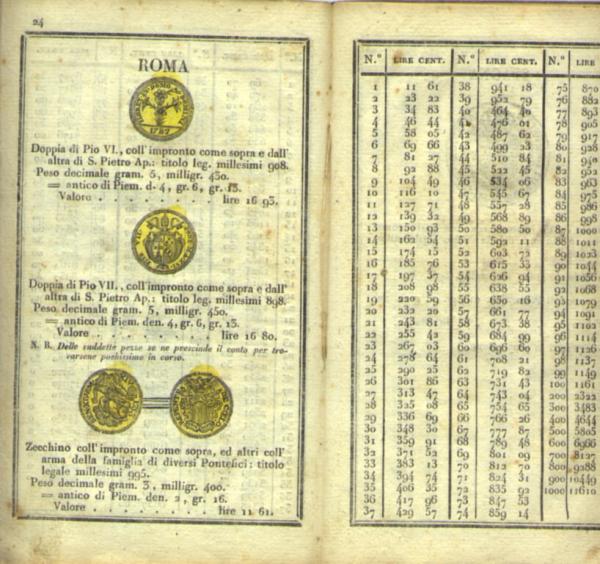 24
ROMA
1787
Doppia di Pio VI., coll'impronto come sopra e dall'
altra di S. Pietro Ap.: titolo leg. millesimi 908.
Peso decimale gram. 5, milligr. 450.
= antico di Piem. d. 4, gr. 6, gr. 13.
Valore . . . . . . . . . lire 16 95.
Doppia di Pio VII., coll'impronto come sopra e dall'
altra di S. Pietro Ap.: titolo leg. millesimi 898.
Peso decimale gram. 5, milligr. 450.
= antico di Piem. den. 4, gr. 6, gr. 13.
Valore . . . . . . . . . lire 16 80.
N. B. Delle suddette pezze se ne prescinde il conto per tro-
varsene pochissime in corso.
Zecchino coll'impronto come sopra, ed altri coll'
arma della famiglia di diversi Pontefici: titolo
legale millesimi 995.
Peso decimale gram. 3, milligr. 400.
= antico di Piem. den. 2, gr. 16.
Valore . . . . . . . . . lire 11 61.
N.° LIRE CENT. N.° LIRE CENT. N.° LIRE
1 11 61 38 441 18 75 870
2 23 22 39 452 79 76 882
3 34 83 40 464 40 77 893
4 46 44 41 476 01 78 905
5 58 05 42 487 62 79 917
6 69 66 43 499 23 80 928
7 81 27 44 510 84 81 940
8 92 88 45 522 45 82 952
9 104 49 46 534 06 83 963
10 116 10 47 545 67 84 975
11 127 71 48 557 28 85 986
12 139 32 49 568 89 86 998
13 150 93 50 580 50 87
14 162 54 51 592 11 88
15 174 15 52 603 72 89
16 185 76 53 615 33 90 1044
17 197 37 54 626 94 91 1056
18 208 98 55 638 55 92 1068
19 220 59 56 650 16 93 1079
20 232 20 57 661 77 94 1091
21 243 81 58 673 38 95 1102
22 255 42 59 684 99 96 1114
23 267 03 60 696 60 97 1126
24 278 64 61 708 21 98 1137
25 290 25 62 719 82 99 1149
26 301 86 63 731 43 100 1161
27 313 47 64 743 04 200 2322
28 325 08 65 754 65 300 3483
29 336 69 66 766 26 400 4644
30 348 30 67 777 87 500 5805
31 359 91 68 789 48 600 6966
32 371 52 69 801 09 700 8127
33 383 13 70 812 70 800 9288
34 394 74 71 824 31 900 10449
35 406 35 72 835 92 1000 11610
36 417 96 73 847 53
37 429 57 74 859 14